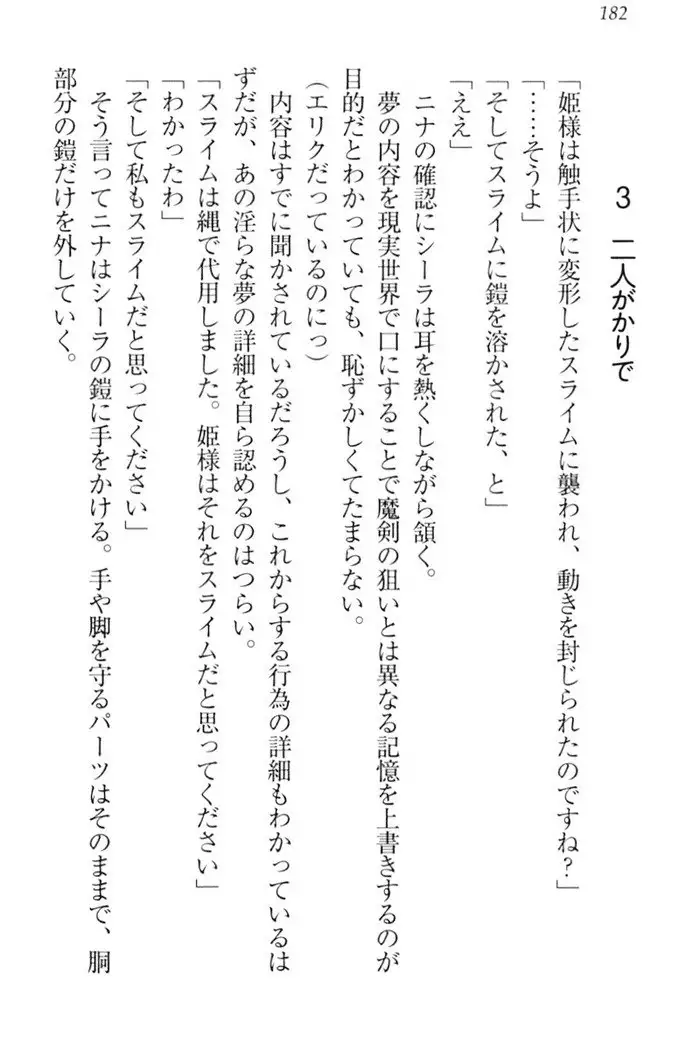 182
3　二人がかりで
「姫様は触手状に変形したスライムに襲われ、動きを封じられたのですね？」
「……そうよ」
「そしてスライムに鎧を溶かされた、と」
「ええ」
ニナの確認にシーラは耳を熱くしながら頷く。
夢の内容を現実世界で口にすることで魔剣の狙いとは異なる記憶を上書きするのが
目的だとわかっていても、恥ずかしくてたまらない。
（エリクだっているのにっ）
内容はすでに聞かされているだろうし、これからする行為の詳細もわかっているは
ずだが、あの淫らな夢の詳細を自ら認めるのはつらい。
「スライムは縄で代用しました。姫様はそれをスライムだと思ってください」
「わかったわ」
「そして私もスライムだと思ってください」
そう言ってニナはシーラの鎧に手をかける。手や脚を守るパーツはそのままで、胴
部分の鎧だけを外していく。